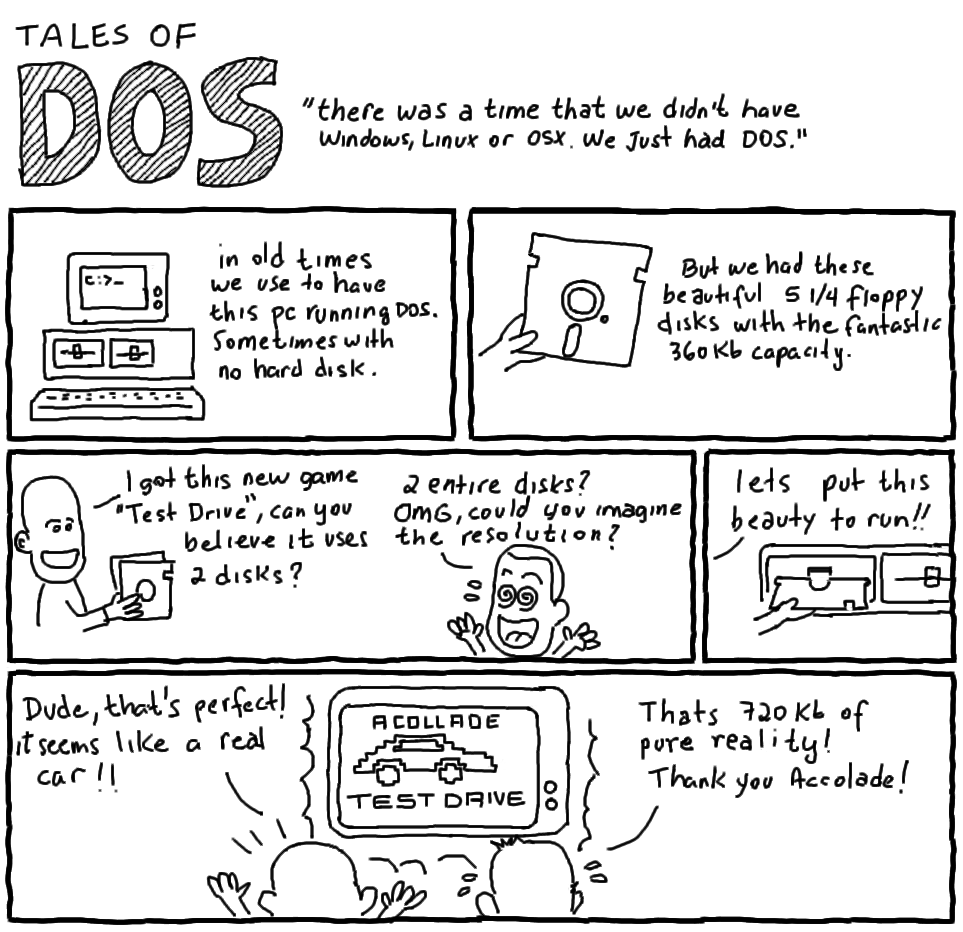 TALES OF
DOS
"there was a time that we didn't have
Windows, Linux or OSX. We Just had DOS."
C:>_
in old times
we use to have
this pc running DOS.
Sometimes with
no hard disk.
But we had these
beautiful 5 1/4 floppy
disks with the fantastic
360Kb capacity.
I got this new game
"Test Drive", can you
believe it uses
2 disks?
2 entire disks?
OMG, could you imagine
the resolution?
lets put this
beauty to run!!
Dude, that's perfect!
it seems like a real
car!!
ACOLLADE
TEST DRIVE
Thats 720Kb of
pure reality!
Thank you Accolade!